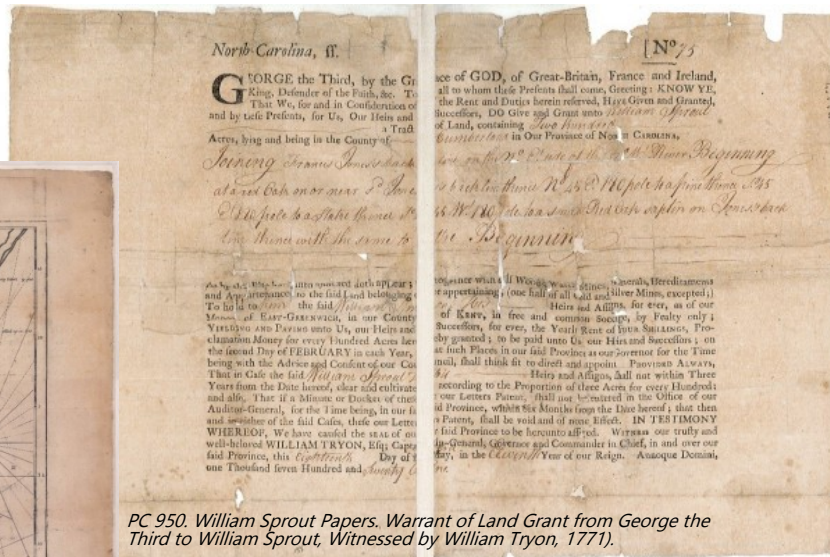 North-Carolina, ff. [No 75
GEORGE the Third, by the Gr ace of GOD, of Great-Britain, France and Ireland,
King, Defender of the Faith, &c. To all to whom these Presents shall come, Greeting: KNOW YE,
That We, for and in Consideration of the Rent and Duties herein reserved, Have Given and Granted,
and by these Presents, for Us, Our Heirs and Successors, DO Give and Grant unto William Sprout
a Tract of Land, containing Two hundred
Acres, lying and being in the County of Cumberland in Our Province of North CAROLINA,
Joining Francis Jones's back line on the No. E. side of the River Beginning
at a red Oak on or near sd. Jones's back line thence No. 45 E. 180 pole to a pine thence So. 45
E. 180 pole to a Stake thence So. 45 W. 180 pole to a small Red Oak saplin on Jones's back
line thence with the same to the Beginning
doth appear; together with all Woods, Waters, Mines, Minerals, Hereditaments
and Appurtenances, to the said Land belonging or appertaining (one half of all Gold and Silver Mines, excepted;)
To hold to him the said William Heirs and Assigns, for ever, as of our
Manor of EAST-GREENWICH, in our County of KENT, in free and common Soccage, by Fealty only;
YIELDING AND PAYING unto Us, our Heirs and Successors, for ever, the Yearly Rent of FOUR SHILLINGS, Pro-
clamation Money for every Hundred Acres hereby granted; to be paid unto Us our Heirs and Successors; on
the second Day of FEBRUARY in each Year, at such Places in our said Province as our Governor for the Time
being with the Advice and Consent of our Council, shall think fit to direct and appoint PROVIDED ALWAYS,
That in Case the said William Sprout his Heirs and Assigns, shall not within Three
Years from the Date hereof, clear and cultivate according to the Proportion of three Acres for every Hundred:
and also, That if a Minute or Docket of these our Letters Patent, shall not be entered in the Office of our
Auditor-General, for the Time being, in our said Province, within Six Months from the Date hereof; that then
and in either of the said Cases, these our Letters Patent, shall be void and of none Effect. IN TESTIMONY
WHEREOF, We have caused the SEAL of our said Province to be hereunto affixed. WITNESS our trusty and
well-beloved WILLIAM TRYON, Esq; Captain-General, Governor and Commander in Chief, in and over our
said Province, this Eighteenth Day of May, in the Eleventh Year of our Reign. Annoque Domini,
one Thousand seven Hundred and Seventy One
PC 950. William Sprout Papers. Warrant of Land Grant from George the
Third to William Sprout, Witnessed by William Tryon, 1771).